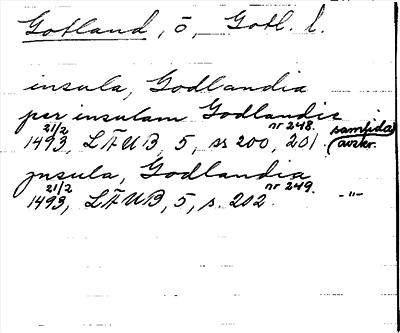 Gotland, ö, Gotl. l.
insula, Godlandia
per insulam Godlandie
21/2 nr 248. samtida
1493, LÄUB, 5, ss 200, 201. avskr.
Jnsula, Godlandia
21/2 nr 249.
1493, LÄUB, 5, s. 202 -"-